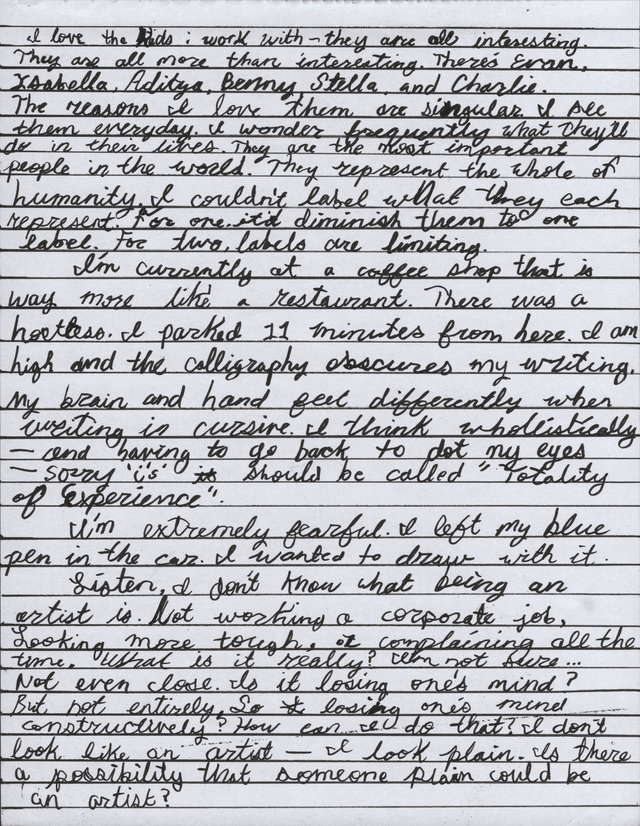 I love the kids i work with – they are all interesting.
They are all more than interesting. There's Evan,
Isabella, Aditya, Benny, Stella, and Charlie.
The reasons I love them are singular. I see
them everyday. I wonder frequently what they'll
do in their lives. They are the most important
people in the world. They represent the whole of
humanity. I couldn't label what they each
represent. For one, it'd diminish them to one
label. For two, labels are limiting.
I'm currently at a coffee shop that is
way more like a restaurant. There was a
hostess. I parked 11 minutes from here. I am
high and the calligraphy obscures my writing.
My brain and hand feel differently when
writing in cursive. I think whollistically
— and having to go back to dot my eyes
— sorry "i's" should be called "Totality
of Experience".
I'm extremely fearful. I left my blue
pen in the car. I wanted to draw with it.
Listen, I don't know what being an
artist is. Not working a corporate job,
Looking more tough, complaining all the
time. What is it really? I'm not sure...
Not even close. Is it losing one's mind?
But not entirely. So losing one's mind
constructively? How can I do that? I don't
look like an artist — I look plain. Is there
a possibility that someone plain could be
an artist?